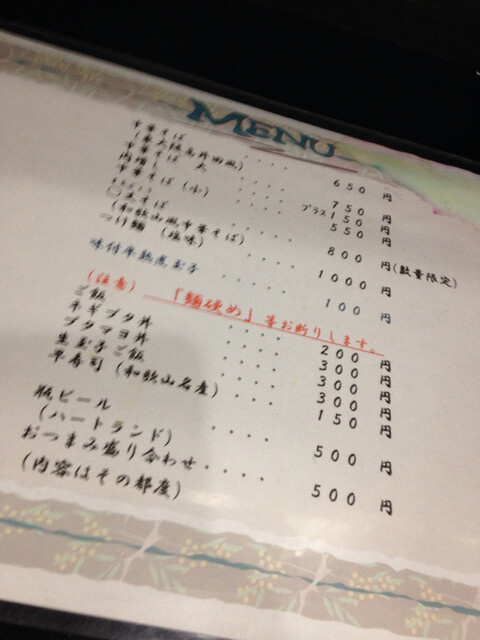 MENU
中華そば ・・・・ 650 円
(東大阪高井田風)
中華そば 大 ・・・・ 750 円
肉増し ・・・・ プラス 150 円
中華そば (小) ・・・・ 550 円
そば ・・・・ 800 円 (数量限定)
(和歌山風中華そば)
つけ麺 (塩味) ・・・・ 1000 円
味付半熟煮玉子 ・・・・・ 100 円
(注意) 「麺硬め」等お断りします。
ご飯 ・・・・ 200 円
ネギブタ丼 ・・・・ 300 円
ブタマヨ丼 ・・・・ 300 円
生玉子ご飯 ・・・・ 300 円
早寿司 (和歌山名産) ・・・・ 150 円
瓶ビール ・・・・ 500 円
(ハートランド)
おつまみ盛り合わせ・・・・ 500 円
(内容はその都度)